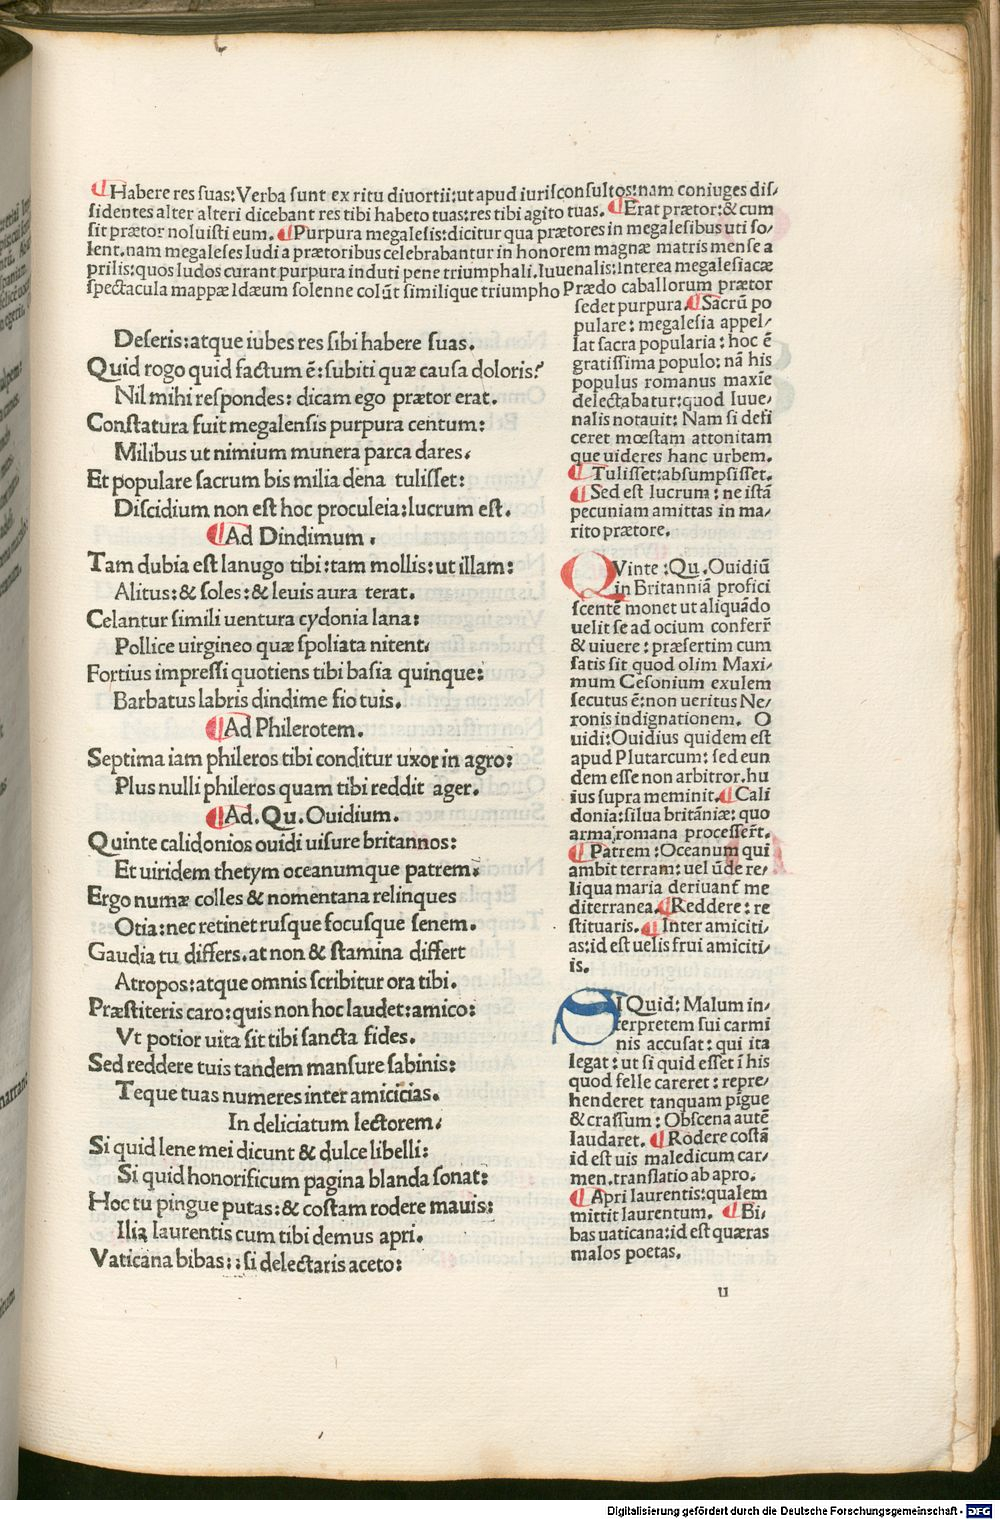 ¶Habere res suas:Verba sunt ex ritu diuortii:ut apud iurisconsultos:nam coniuges dis/
sidentes alter alteri dicebant res tibi habeto tuas:res tibi agito tuas. ¶Erat prætor:& cum
sit prætor noluisti eum. ¶Purpura megalesis:dicitur qua prætores in megalesibus uti so/
lent.nam megaleses ludi a prætoribus celebrabantur in honorem magnæ matris mense a
prilis:quos ludos curant purpura induti pene triumphali.Iuuenalis:Interea megalesiacæ
spectacula mappæ Idæum solenne colūt similique triumpho Prædo caballorum prætor
sedet purpura.¶Sacrū po
pulare: megalesia appel/
lat sacra popularia: hoc ē
gratissima populo: nā his
populus romanus maxīe
delectabatur:quod Iuue/
nalis notauit: Nam si defi
ceret mœstam attonitam
que uideres hanc urbem.
¶Tulisset:absumpsisset.
¶Sed est lucrum: ne istā
pecuniam amittas in ma/
rito prætore.
Deseris:atque iubes res sibi habere suas.
Quid rogo quid factum ē:subiti quæ causa doloris?
Nil mihi respondes: dicam ego prætor erat.
Constatura fuit megalensis purpura centum:
Milibus ut nimium munera parca dares.
Et populare sacrum bis milia dena tulisset:
Discidium non est hoc proculeia:lucrum est.
¶Ad Dindimum.
Tam dubia est lanugo tibi:tam mollis:ut illam:
Alitus:& soles:& leuis aura terat.
Celantur simili uentura cydonia lana:
Pollice uirgineo quæ spoliata nitent.
Fortius impressi quotiens tibi basia quinque:
Barbatus labris dindime fio tuis.
¶Ad Philerotem.
Septima iam phileros tibi conditur uxor in agro:
Plus nulli phileros quam tibi reddit ager.
¶Ad.Qu.Ouidium.
Quinte calidonios ouidi uisure britannos:
Et uiridem thetym oceanumque patrem:
Ergo numæ colles & nomentana relinques
Otia:nec retinet rusque focusque senem.
Gaudia tu differs.at non & stamina differt
Atropos:atque omnis scribitur ora tibi.
Præstiteris caro:quis non hoc laudet:amico:
Vt potior uita sit tibi sancta fides.
Sed reddere tuis tandem mansure sabinis:
Teque tuas numeres inter amicicias.
In deliciatum lectorem.
Si quid lene mei dicunt & dulce libelli:
Si quid honorificum pagina blanda sonat:
Hoc tu pingue putas:& costam rodere mauis:
Ilia laurentis cum tibi demus apri.
Vaticana bibas::si delectaris aceto:
QVinte:Qu.Ouidiū
in Britanniā profici
scentē monet ut aliquādo
uelit se ad ocium conferr̄
& uiuere: præsertim cum
satis sit quod olim Maxi/
mum Cesonium exulem
secutus ē:non ueritus Ne/
ronis indignationem. O
uidi:Ouidius quidem est
apud Plutarcum: sed eun
dem esse non arbitror.hu
ius supra meminit.¶Cali
donia:silua britāniæ: quo
arma romana processer̄t.
¶Patrem:Oceanum qui
ambit terram: uel ūde re/
liqua maria deriuant̄ me
diterranea.¶Reddere: re
stituaris.¶Inter amiciti/
as:id est uelis frui amiciti/
is.
SI Quid: Malum in/
terpretem sui carmi
nis accusat: qui ita
legat: ut si quid esset ī his
quod felle careret: repre/
henderet tanquam pigue
& crassum: Obscena autē
laudaret. ¶Rodere costā
id est uis maledicum car/
men.translatio ab apro.
¶Apri laurentis:qualem
mittit laurentum. ¶Bi/
bas uaticana:id est quæras
malos poetas.
u
Digitalisierung gefördert durch die Deutsche Forschungsgemeinschaft - DFG